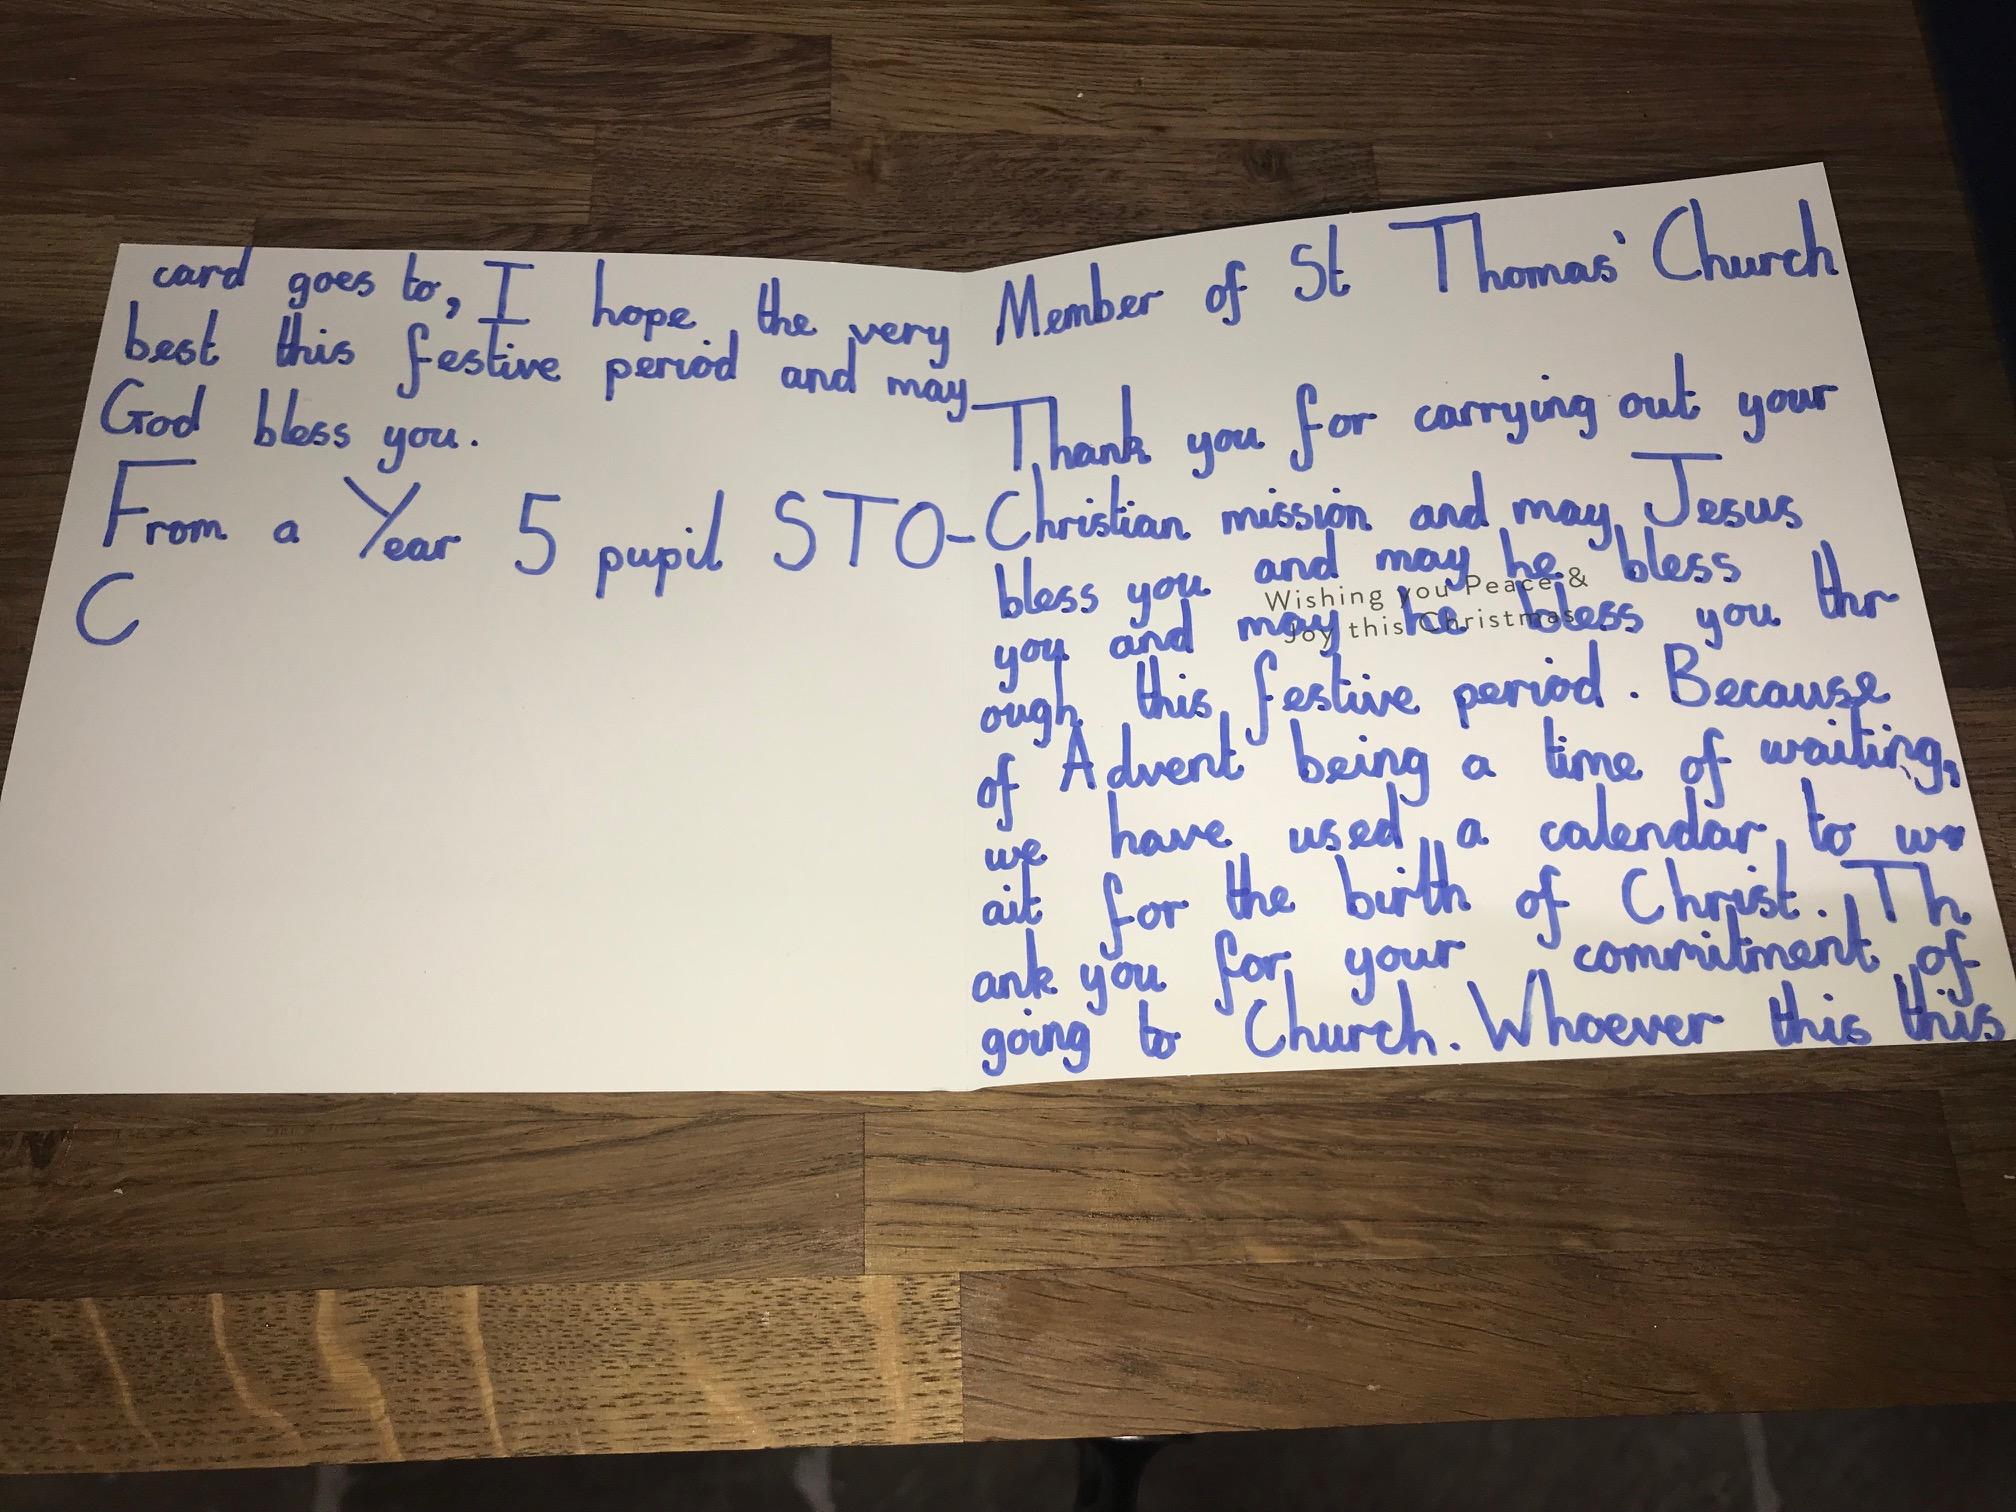 Member of St Thomas' Church
Thank you for carrying out your
Christian mission and may Jesus
bless you and may he bless
you and may he bless you thr
ough this festive period. Because
of Advent being a time of waiting,
we have used a calendar to w
ait for the birth of Christ. Th
ank you for your commitment of
going to Church. Whoever this this
Wishing you Peace &
Joy this Christmas
card goes to, I hope the very
best this festive period and may
God bless you.
From a Year 5 pupil STO-
C